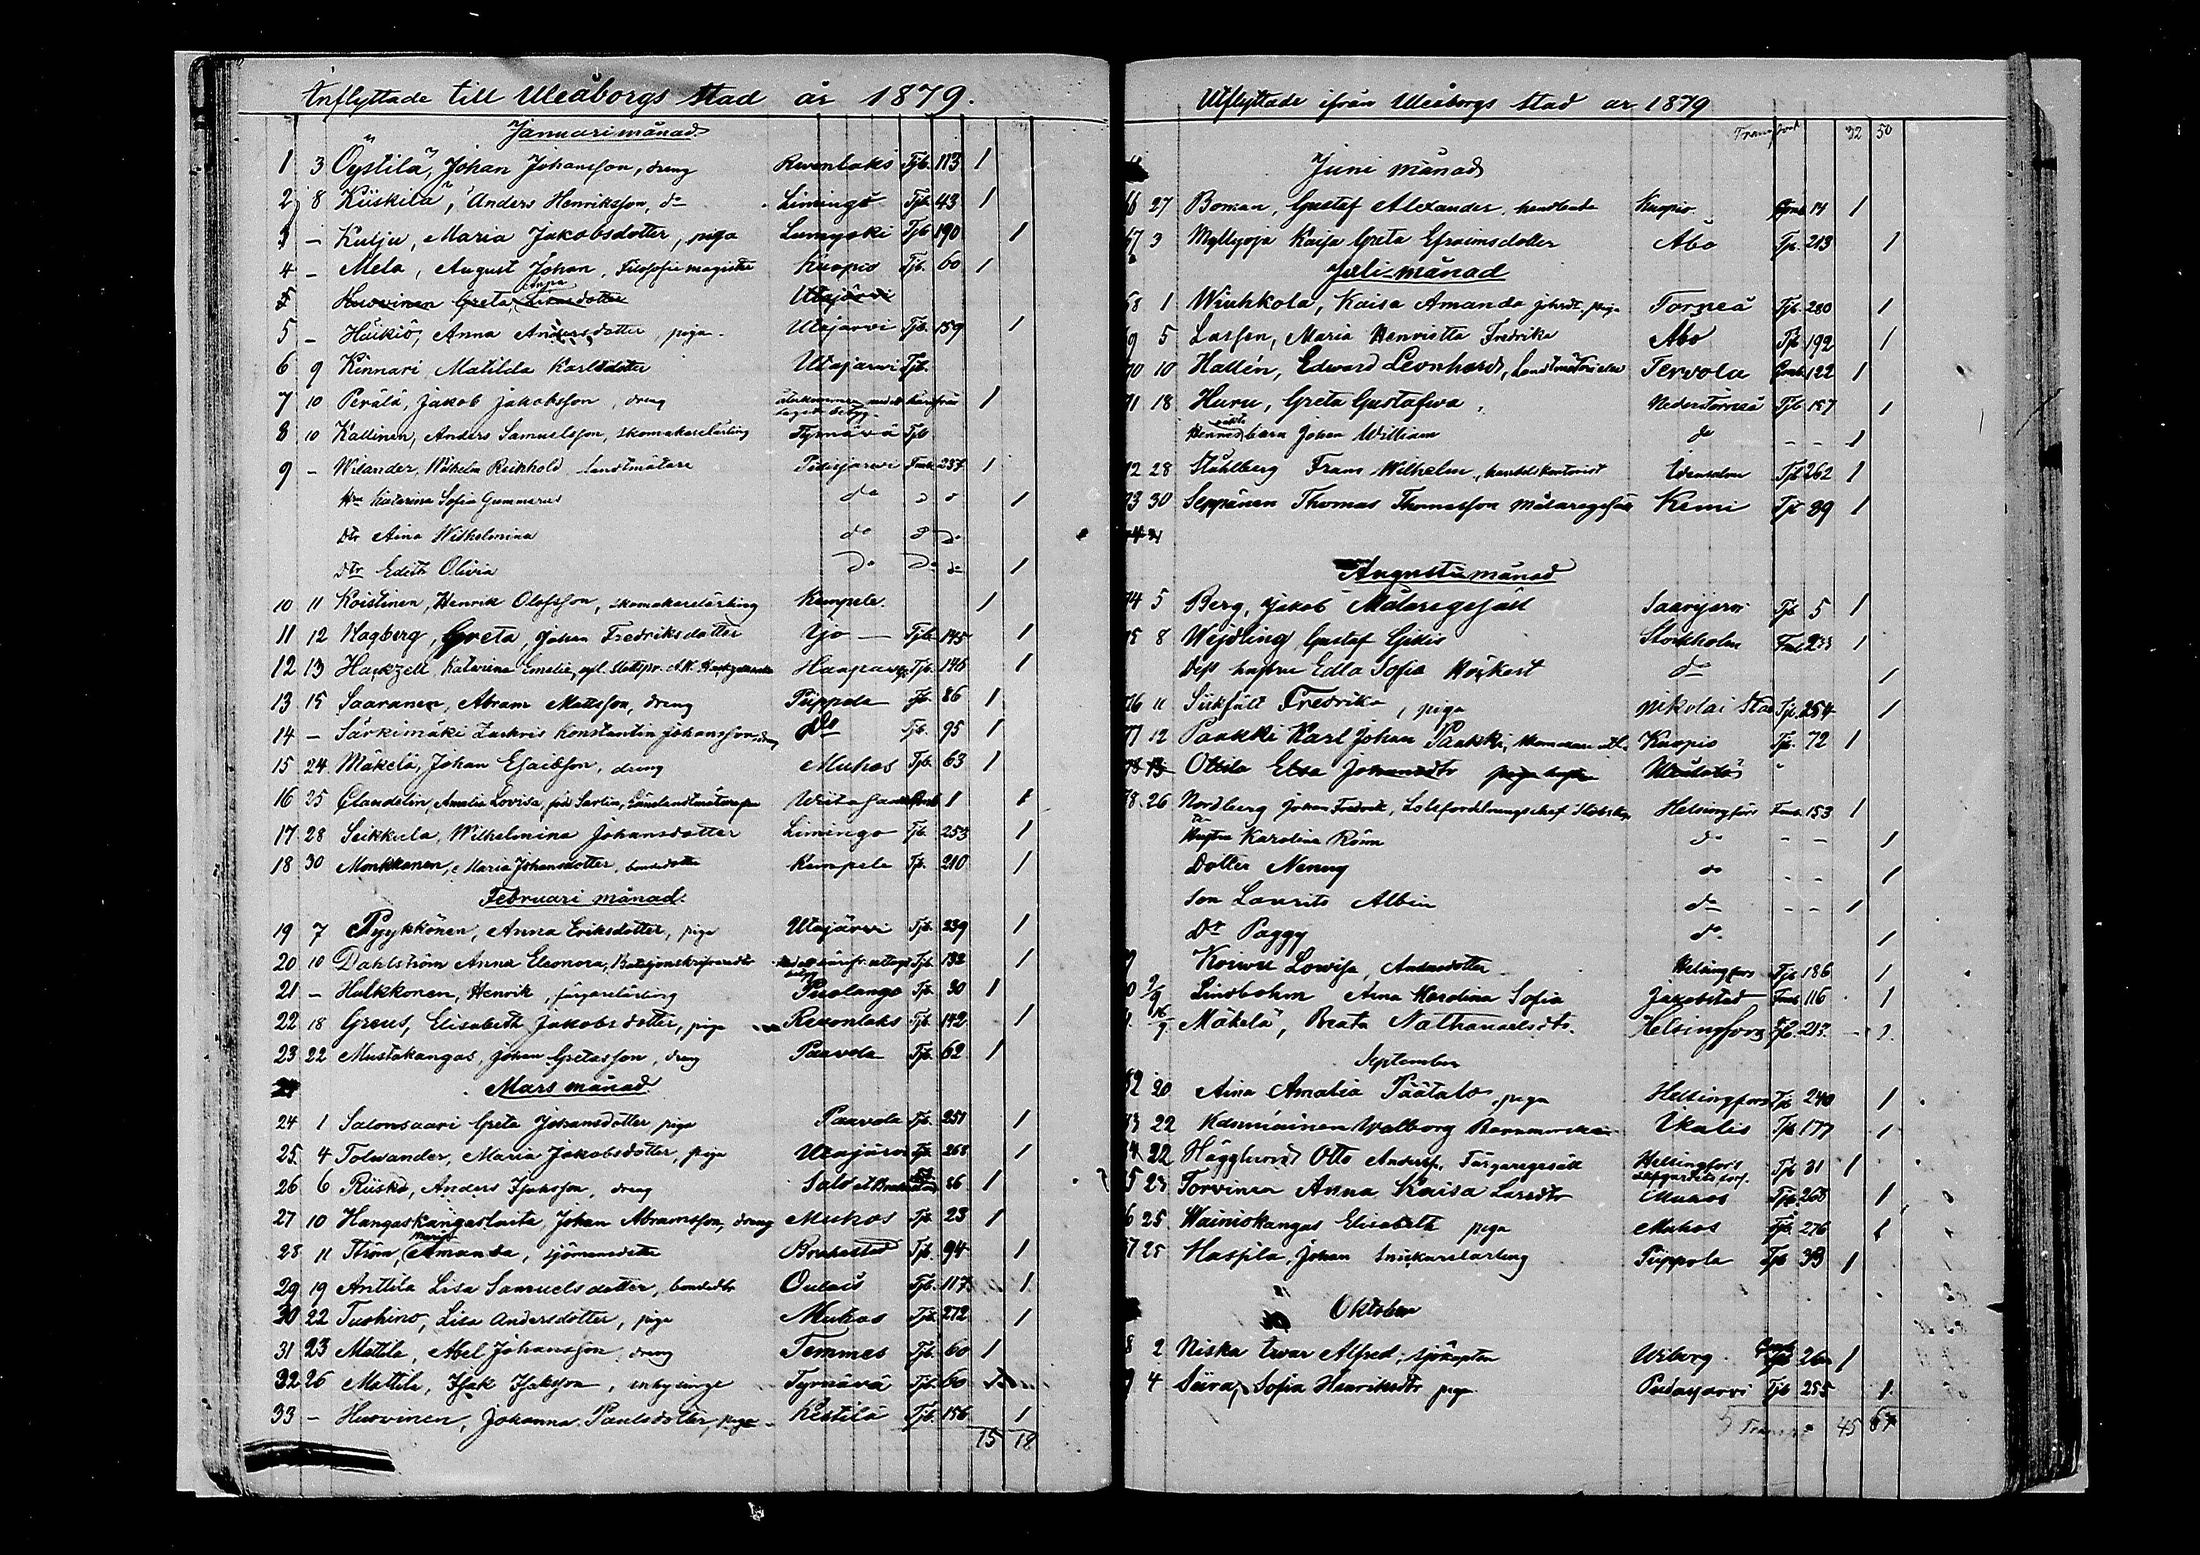 Inflyttade till Uleåborgs stad år 1879.
Januari månad
1 3 Öystilä, Johan Johansson, dreng Revonlaks Tjb. 113 1
2 8 Kiiskilä, Anders Henriksson, do Limingo Tjb. 43 1
3 – Kulju, Maria Jakobsdotter, piga Lumijoki Tjb 190 1
4 – Mela, August Johan, Filosofiemagister Kuopio Tjb. 60 1
5 Huovinen Greta dotter Utajärvi
5 – Häikiö, Anna Andersdotter, piga. Utajärvi Tjb. 159 1
6 9 Kinnari Matilda Karlsdotter Utajärvi Tjb.
7 10 Perälä, Jakob Jakobsson, dreng återkommen med härifrån taget betyg. 1
8 10 Kallinen, Anders Samuelsson, skomakarelärling Tyrnävä Tjb
9 – Wilander, Wilhelm Reinhold landtmätare Pidisjärvi Fmb. 237 1
Hru Katarina Sofia Gummerus do 1
dtr Aina Wilhelmina do
dtr Edith Olivia do 1
10 11 Koistinen, Henrik Olofsson, skomakarelärling Kempele. 1
11 12 Hagberg, Greta, Johan Fredriksdotter Ijo – Tjb. 145 1
12 13 Haukzell Katarina Emelia, Haapavesi Tjb. 146 1
13 15 Saaranen, Abram Mattsson, dreng Piippola Tjb. 86 1
14 – Särkimäki Zackris Konstantin Johansson, dreng Do Tjb. 95 1
15 24 Mäkelä, Johan Esaiasson, dreng Muhos Tjb. 63 1
16 25 Clandelin Amalia Lovisa, född Sarlin, 1 1
17 28 Seikkula, Wilhelmina Johansdotter Limingo Tjb. 253 1
18 30 Monkkonen, Maria Johansdotter, bondedotter Kempele Tjb. 210 1
Februari månad.
19 7 Pyykkönen, Anna Eriksdotter, piga Utajärvi Tjb. 239 1
20 10 Dahlström Anna Eleonora, Tjb. 132 1
21 – Hulkkonen, Henrik, färgarelärling Puolango Tjb. 30 1
22 18 Greus, Elisabeth Jakobsdotter, piga Revonlaks Tjb. 142 1
23 22 Mustakangas, Johan Gretasson, dreng Paavola Tjb. 62 1
24 Mars månad
24 1 Salonsaari Greta Johansdotter piga Paavola Tjb. 251 1
25 4 Tolvander, Maria Jakobsdotter, piga Utajärvi Tjb. 268 1
26 6 Riisko, Anders Isaksson, dreng Salo 86 1
27 10 Hangaskangaslaita, Johan Abramsson, dreng Muhos Tjb. 23 1
28 11 Ström, Maria Amanda, sjömansdotter Brahestad Tjb. 94 1
29 19 Anttila Lisa Samuelsdotter, bondedtr Oulais Tjb. 117 1
30 22 Tuohino, Lisa Andersdotter, piga Muhos Tjb. 272 1
31 23 Mattila, Abel Johansson, dreng Temmes Tjb. 60 1
32 26 Mattila, Isak Isaksson, inhysinge Tyrnävä Tjb. 60
33 – Huovinen, Johanna Paulsdotter, piga Kestilä Tjb. 156 1
15 18
Utflyttade ifrån Uleåborgs stad år 1879
Transport 32 50
Juni månad
66 27 Boman, Gustaf Alexander, handlande Kuopio 14 1
67 3 Myllyoja Kaisa Greta Efraimsdotter Åbo Tjb. 213 1
Juli månad
68 1 Wiuhkola, Kaisa Amanda Johsdt. piga Torneå Tjb. 280 1
9 5 Larsen, Maria Henrietta Fredrika Åbo Tjb 192 1
70 10 Hallén, Edward Leonhard, Tervola 122 1
71 18 Huru, Greta Gustafva, Nedertorneå Tjb 157 1
Hennes oäkta barn Johan William do – – 1
72 28 Ståhlberg Frans Wilhelm, handelskontorist Idensalmi Tjb 262 1
73 30 Seppänen Thomas Thomasson målaregesäll Kemi Tjb 89 1
74 31
Augusti månad
74 5 Berg, Jakob Målaregesäll Saarijärvi Tjb 5 1
75 8 Wejdling Gustaf Stockholm Fmb 233 1
Dess hustru Edla Sofia Höckert do 1
76 11 Siikfält Fredrika, piga Nikolai Stad Tjb. 254 1
77 12 Paakki Karl Johan Paakki, Kuopio Tjb. 72 1
78 13 Ottila Elsa Johansdtr piga
78. 26 Nordberg Johan Fredrik, Helsingfors Fmb. 153 1
Hustru Karolina Rönn do – – 1
Dotter Nenny do – – 1
Son Laurits Albin do – – 1
Dr Paggy do 1
9 Koivu Lowisa, Andersdotter Helsingfors Tjb 186 1
0 2/9 Lindbohm Anna Karolina Sofia Jakobstad Fmb 116 1
1. 16/9 Mäkelä, Beata Nathanaelsdtr. Helsingfors Tjb. 213 1
September
82 20 Aina Amalia Päätalo, piga Helsingfors Tjb 240 1
83 22 Kasuriinen Walborg Ikalis Tjb 177 1
4 22 Hägglund Otto Andersn, Färgaregesäll Helsingfors Tjb 31 1
5 23 Torvinen Anna Kaisa Larsdtr Muhos Tjb 268 1
6 25 Wainiskangas Elisabeth piga Muhos Tjb. 276 1
87 25 Haapila, Johan Snickarelärling Piippola Tjb 33 1
Oktober
8 2 Niska Ivar Alfred, sjökapten Wiborg. 260 1
9 4 Siira, Sofia Henriksdtr piga Pudasjärvi Tjb 255 1
45 67